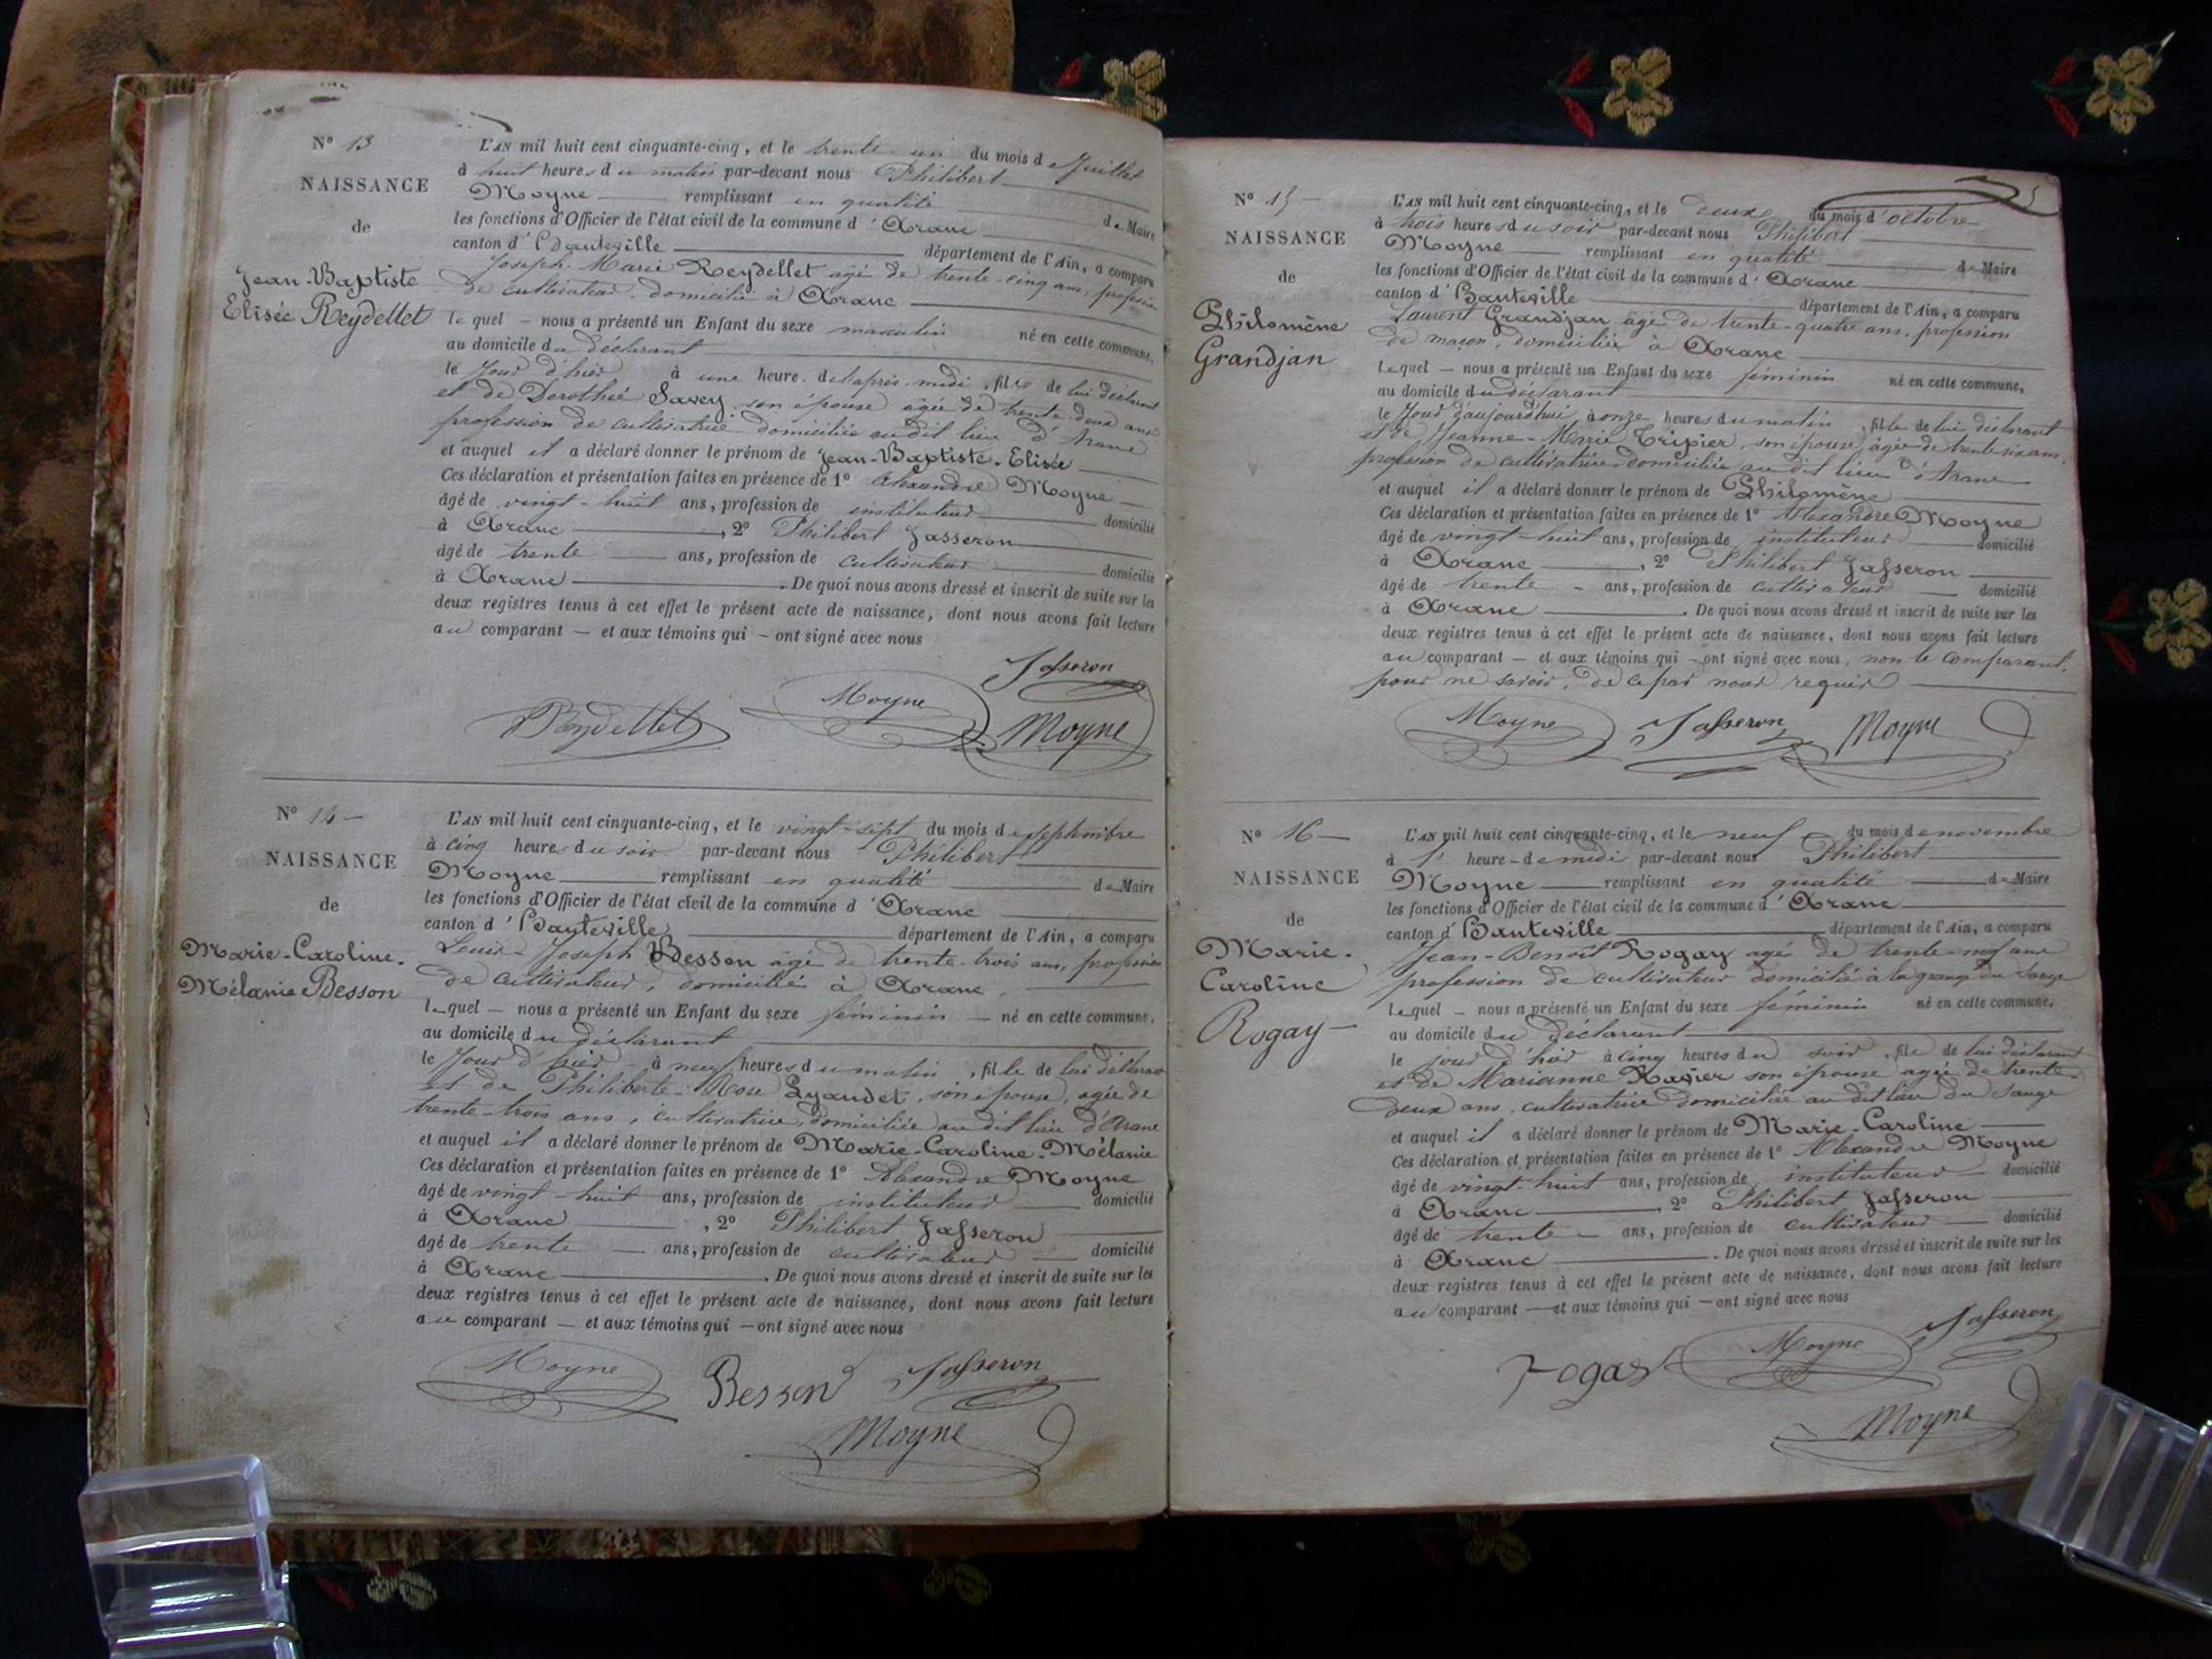 N° 13
NAISSANCE
de
Jean-Baptiste
Elisée Reydellet
L'AN mil huit cent cinquante-cinq, et le trente-un du mois de Juillet
à huit heures du matin par-devant nous Philibert
Moyne remplissant en qualité de Maire
les fonctions d'Officier de l'état civil de la commune d'Aranc
canton d'Hauteville département de l'Ain, a comparu
Joseph-Marie Reydellet agé de trente-cinq ans, profession
de cultivateur, domicilié à Aranc
lequel – nous a présenté un Enfant du sexe masculin né en cette commune,
au domicile du déclarant
le jour d'hier à une heure de l'après-midi, fils de lui déclarant
et de Dorothée Savey son épouse agée de trente-deux ans
profession de cultivatrice domiciliée au dit lieu d'Aranc
et auquel il a déclaré donner le prénom de Jean-Baptiste-Elisée
Ces déclaration et présentation faites en présence de 1° Alexandre Moyne
âgé de vingt-huit ans, profession de instituteur domicilié
à Aranc, 2° Philibert Jasseron
âgé de trente ans, profession de cultivateur domicilié
à Aranc. De quoi nous avons dressé et inscrit de suite sur les
deux registres tenus à cet effet le présent acte de naissance, dont nous avons fait lecture
au comparant – et aux témoins qui – ont signé avec nous
Jasseron
Reydellet Moyne Moyne
N° 14
NAISSANCE
de
Marie-Caroline-
Mélanie Besson
L'AN mil huit cent cinquante-cinq, et le vingt-sept du mois de septembre
à cinq heures du soir par-devant nous Philibert
Moyne remplissant en qualité de Maire
les fonctions d'Officier de l'état civil de la commune d'Aranc
canton d'Hauteville département de l'Ain, a comparu
Louis-Joseph Besson agé de trente-trois ans, profession
de cultivateur, domicilié à Aranc
lequel – nous a présenté un Enfant du sexe féminin – né en cette commune,
au domicile du déclarant
le jour d'hier à neuf heures du matin, fille de lui déclarant
et de Philiberte-Rose Lyaudet, son épouse, agée de
trente-trois ans, cultivatrice, domiciliée au dit lieu d'Aranc
et auquel il a déclaré donner le prénom de Marie-Caroline-Mélanie
Ces déclaration et présentation faites en présence de 1° Alexandre Moyne
âgé de vingt-huit ans, profession de instituteur domicilié
à Aranc, 2° Philibert Jasseron
âgé de trente ans, profession de cultivateur domicilié
à Aranc. De quoi nous avons dressé et inscrit de suite sur les
deux registres tenus à cet effet le présent acte de naissance, dont nous avons fait lecture
au comparant – et aux témoins qui – ont signé avec nous
Moyne Besson Jasseron
Moyne
N° 15
NAISSANCE
de
Philomène
Grandjan
L'AN mil huit cent cinquante-cinq, et le deux du mois d'octobre
à trois heures du soir par-devant nous Philibert
Moyne remplissant en qualité de Maire
les fonctions d'Officier de l'état civil de la commune d'Aranc
canton d'Hauteville département de l'Ain, a comparu
Laurent Grandjan agé de trente-quatre ans, profession
de maçon, domicilié à Aranc
lequel – nous a présenté un Enfant du sexe féminin né en cette commune,
au domicile du déclarant
le jour d'aujourd'hui, à onze heures du matin, fille de lui déclarant
et de Jeanne-Marie Tripier, son épouse, agée de trente-six ans,
profession de cultivatrice, domiciliée au dit lieu d'Aranc
et auquel il a déclaré donner le prénom de Philomène
Ces déclaration et présentation faites en présence de 1° Alexandre Moyne
âgé de vingt-huit ans, profession de instituteur domicilié
à Aranc, 2° Philibert Jasseron
âgé de trente – ans, profession de cultivateur domicilié
à Aranc. De quoi nous avons dressé et inscrit de suite sur les
deux registres tenus à cet effet le présent acte de naissance, dont nous avons fait lecture
au comparant – et aux témoins qui – ont signé avec nous, non le comparant,
pour ne savoir, de ce par nous requis
Moyne Jasseron Moyne
N° 16
NAISSANCE
de
Marie-
Caroline
Rogay
L'AN mil huit cent cinquante-cinq, et le neuf du mois de novembre
à l' heure – de midi par-devant nous Philibert
Moyne remplissant en qualité de Maire
les fonctions d'Officier de l'état civil de la commune d'Aranc
canton d'Hauteville département de l'Ain, a comparu
Jean-Benoit Rogay agé de trente-neuf ans
profession de cultivateur domicilié à la grange du Sauge
lequel – nous a présenté un Enfant du sexe féminin né en cette commune,
au domicile du déclarant
le jour d'hier à cinq heures du soir, fille de lui déclarant
et de Marianne Ravier son épouse agée de trente-
deux ans, cultivatrice domiciliée au dit lieu du Sauge
et auquel il a déclaré donner le prénom de Marie-Caroline
Ces déclaration et présentation faites en présence de 1° Alexandre Moyne
âgé de vingt-huit ans, profession de instituteur domicilié
à Aranc, 2° Philibert Jasseron
âgé de trente – ans, profession de cultivateur domicilié
à Aranc. De quoi nous avons dressé et inscrit de suite sur les
deux registres tenus à cet effet le présent acte de naissance, dont nous avons fait lecture
au comparant – et aux témoins qui – ont signé avec nous
Jasseron
Rogay Moyne
Moyne